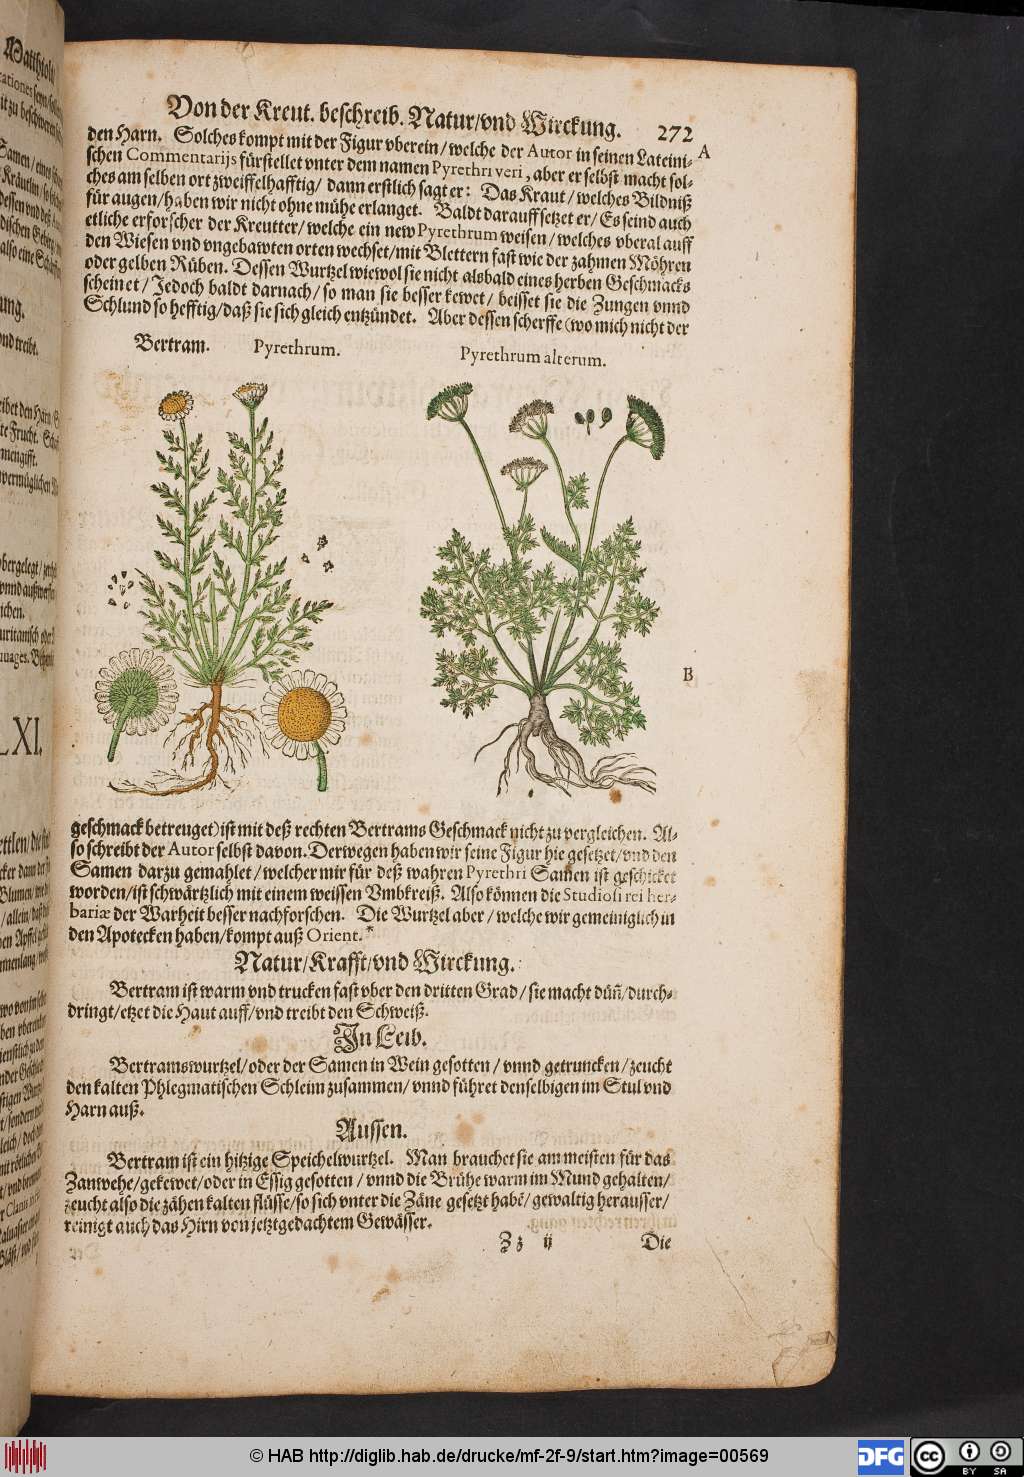 Von der Kreut. beschreib. Natur/vnd Wirckung. 272
den Harn. Solches kompt mit der Figur vberein/welche der Autor in seinen Lateini- A
schen Commentarijs fürstellet vnter dem namen Pyrethri veri, aber er selbst macht sol-
ches am selben ort zweiffelhafftig/ dann erstlich sagt er: Das Kraut/welches Bildniß
für augen/haben wir nicht ohne mühe erlanget. Baldt darauff setzet er/ Es seind auch
etliche erforscher der Kreutter/welche ein new Pyrethrum weisen/welches vberal auff
den Wiesen vnd vngebawten orten wechset/mit Blettern fast wie der zahmen Möhren
oder gelben Rüben. Dessen Wurtzel wiewol sie nicht alsbald eines herben Geschmacks
scheinet/ Jedoch baldt darnach/so man sie besser kewet/ beisset sie die Zungen vnnd
Schlund so hefftig/daß sie sich gleich entzündet. Aber dessen scherffe (wo mich nicht der
Bertram. Pyrethrum. Pyrethrum alterum.
B
geschmack betreuget) ist mit deß rechten Bertrams Geschmack nicht zu vergleichen. Al-
so schreibt der Autor selbst davon. Derwegen haben wir seine Figur hie gesetzet/vnd den
Samen darzu gemahlet/welcher mir für deß wahren Pyrethri Samen ist geschicket
worden/ist schwärtzlich mit einem weissen Vmbkreiß. Also können die Studiosi rei her-
bariæ der Warheit besser nachforschen. Die Wurtzel aber/welche wir gemeiniglich in
den Apotecken haben/kompt auß Orient.*
Natur/Krafft/vnd Wirckung.
Bertram ist warm vnd trucken fast vber den dritten Grad/sie macht düñ/durch-
dringt/etzet die Haut auff/vnd treibt den Schweiß.
In Leib.
Bertramswurtzel/oder der Samen in Wein gesotten/vnnd getruncken/zeucht
den kalten Phlegmatischen Schleim zusammen/vnnd führet denselbigen im Stul vnd
Harn auß.
Aussen.
Bertram ist ein hitzige Speichelwurtzel. Man brauchet sie am meisten für das
Zanwehe/gekewet/oder in Essig gesotten/vnnd die Brühe warm im Mund gehalten/
zeucht also die zähen kalten flüsse/so sich vnter die Zäne gesetzt habē/gewaltig herausser/
reinigt auch das Hirn von jetztgedachtem Gewässer.
Zz ij Die
© HAB http://diglib.hab.de/drucke/mf-2f-9/start.htm?image=00569
DFG
cc BY SA